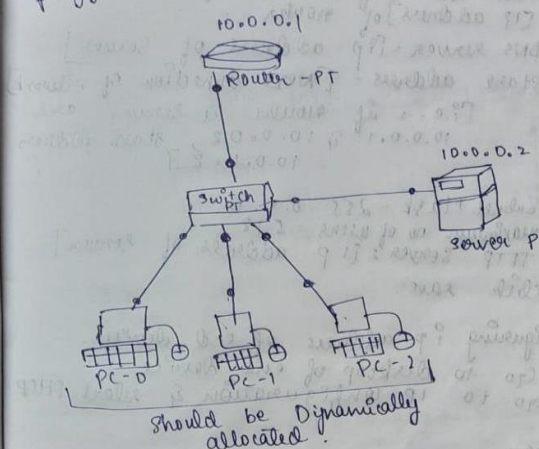 10.0.0.1
Router-PT
10.0.0.2
Switch
PT
Server P
PC-0
PC-1
PC-2
Should be Dynamically
allocated.